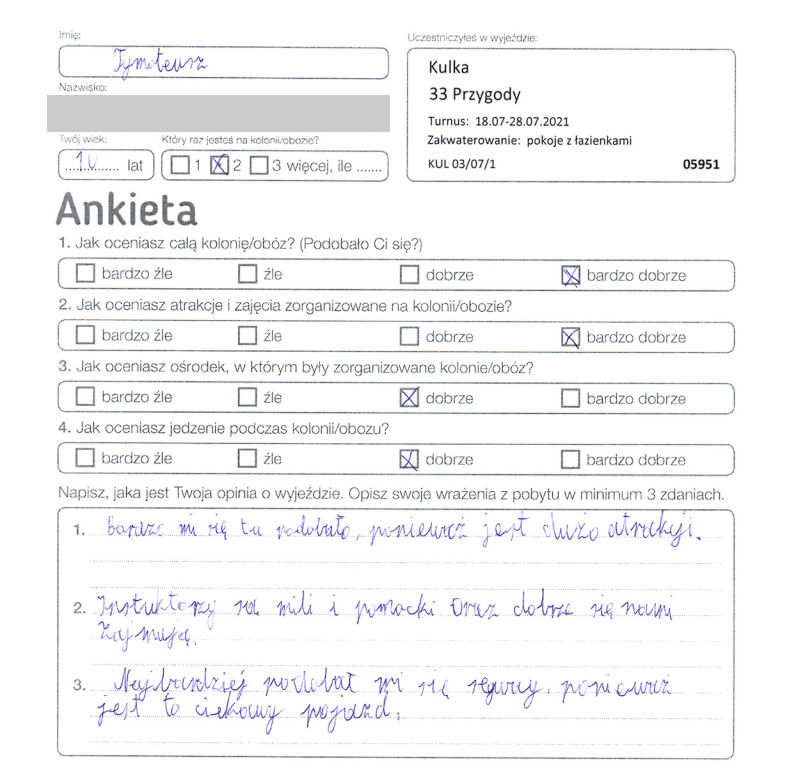 Imię:
Tymoteusz
Nazwisko:
Twój wiek:
Który raz jesteś na kolonii/obozie?
10 lat
1 2 3 więcej, ile .......
Uczestniczyłeś w wyjeździe:
Kulka
33 Przygody
Turnus: 18.07-28.07.2021
Zakwaterowanie: pokoje z łazienkami
KUL 03/07/1 05951
Ankieta
1. Jak oceniasz całą kolonię/obóz? (Podobało Ci się?)
bardzo źle źle dobrze bardzo dobrze
2. Jak oceniasz atrakcje i zajęcia zorganizowane na kolonii/obozie?
bardzo źle źle dobrze bardzo dobrze
3. Jak oceniasz ośrodek, w którym były zorganizowane kolonie/obóz?
bardzo źle źle dobrze bardzo dobrze
4. Jak oceniasz jedzenie podczas kolonii/obozu?
bardzo źle źle dobrze bardzo dobrze
Napisz, jaka jest Twoja opinia o wyjeździe. Opisz swoje wrażenia z pobytu w minimum 3 zdaniach.
1. bardzo mi się tu podobało, ponieważ jest dużo atrakcji.
2. Instuktorzy są mili i pomocki oraz dobrze się nami
zajmują.
3. Najbardziej podobał mi się segway, ponieważ
jest to ciekawy pojazd.